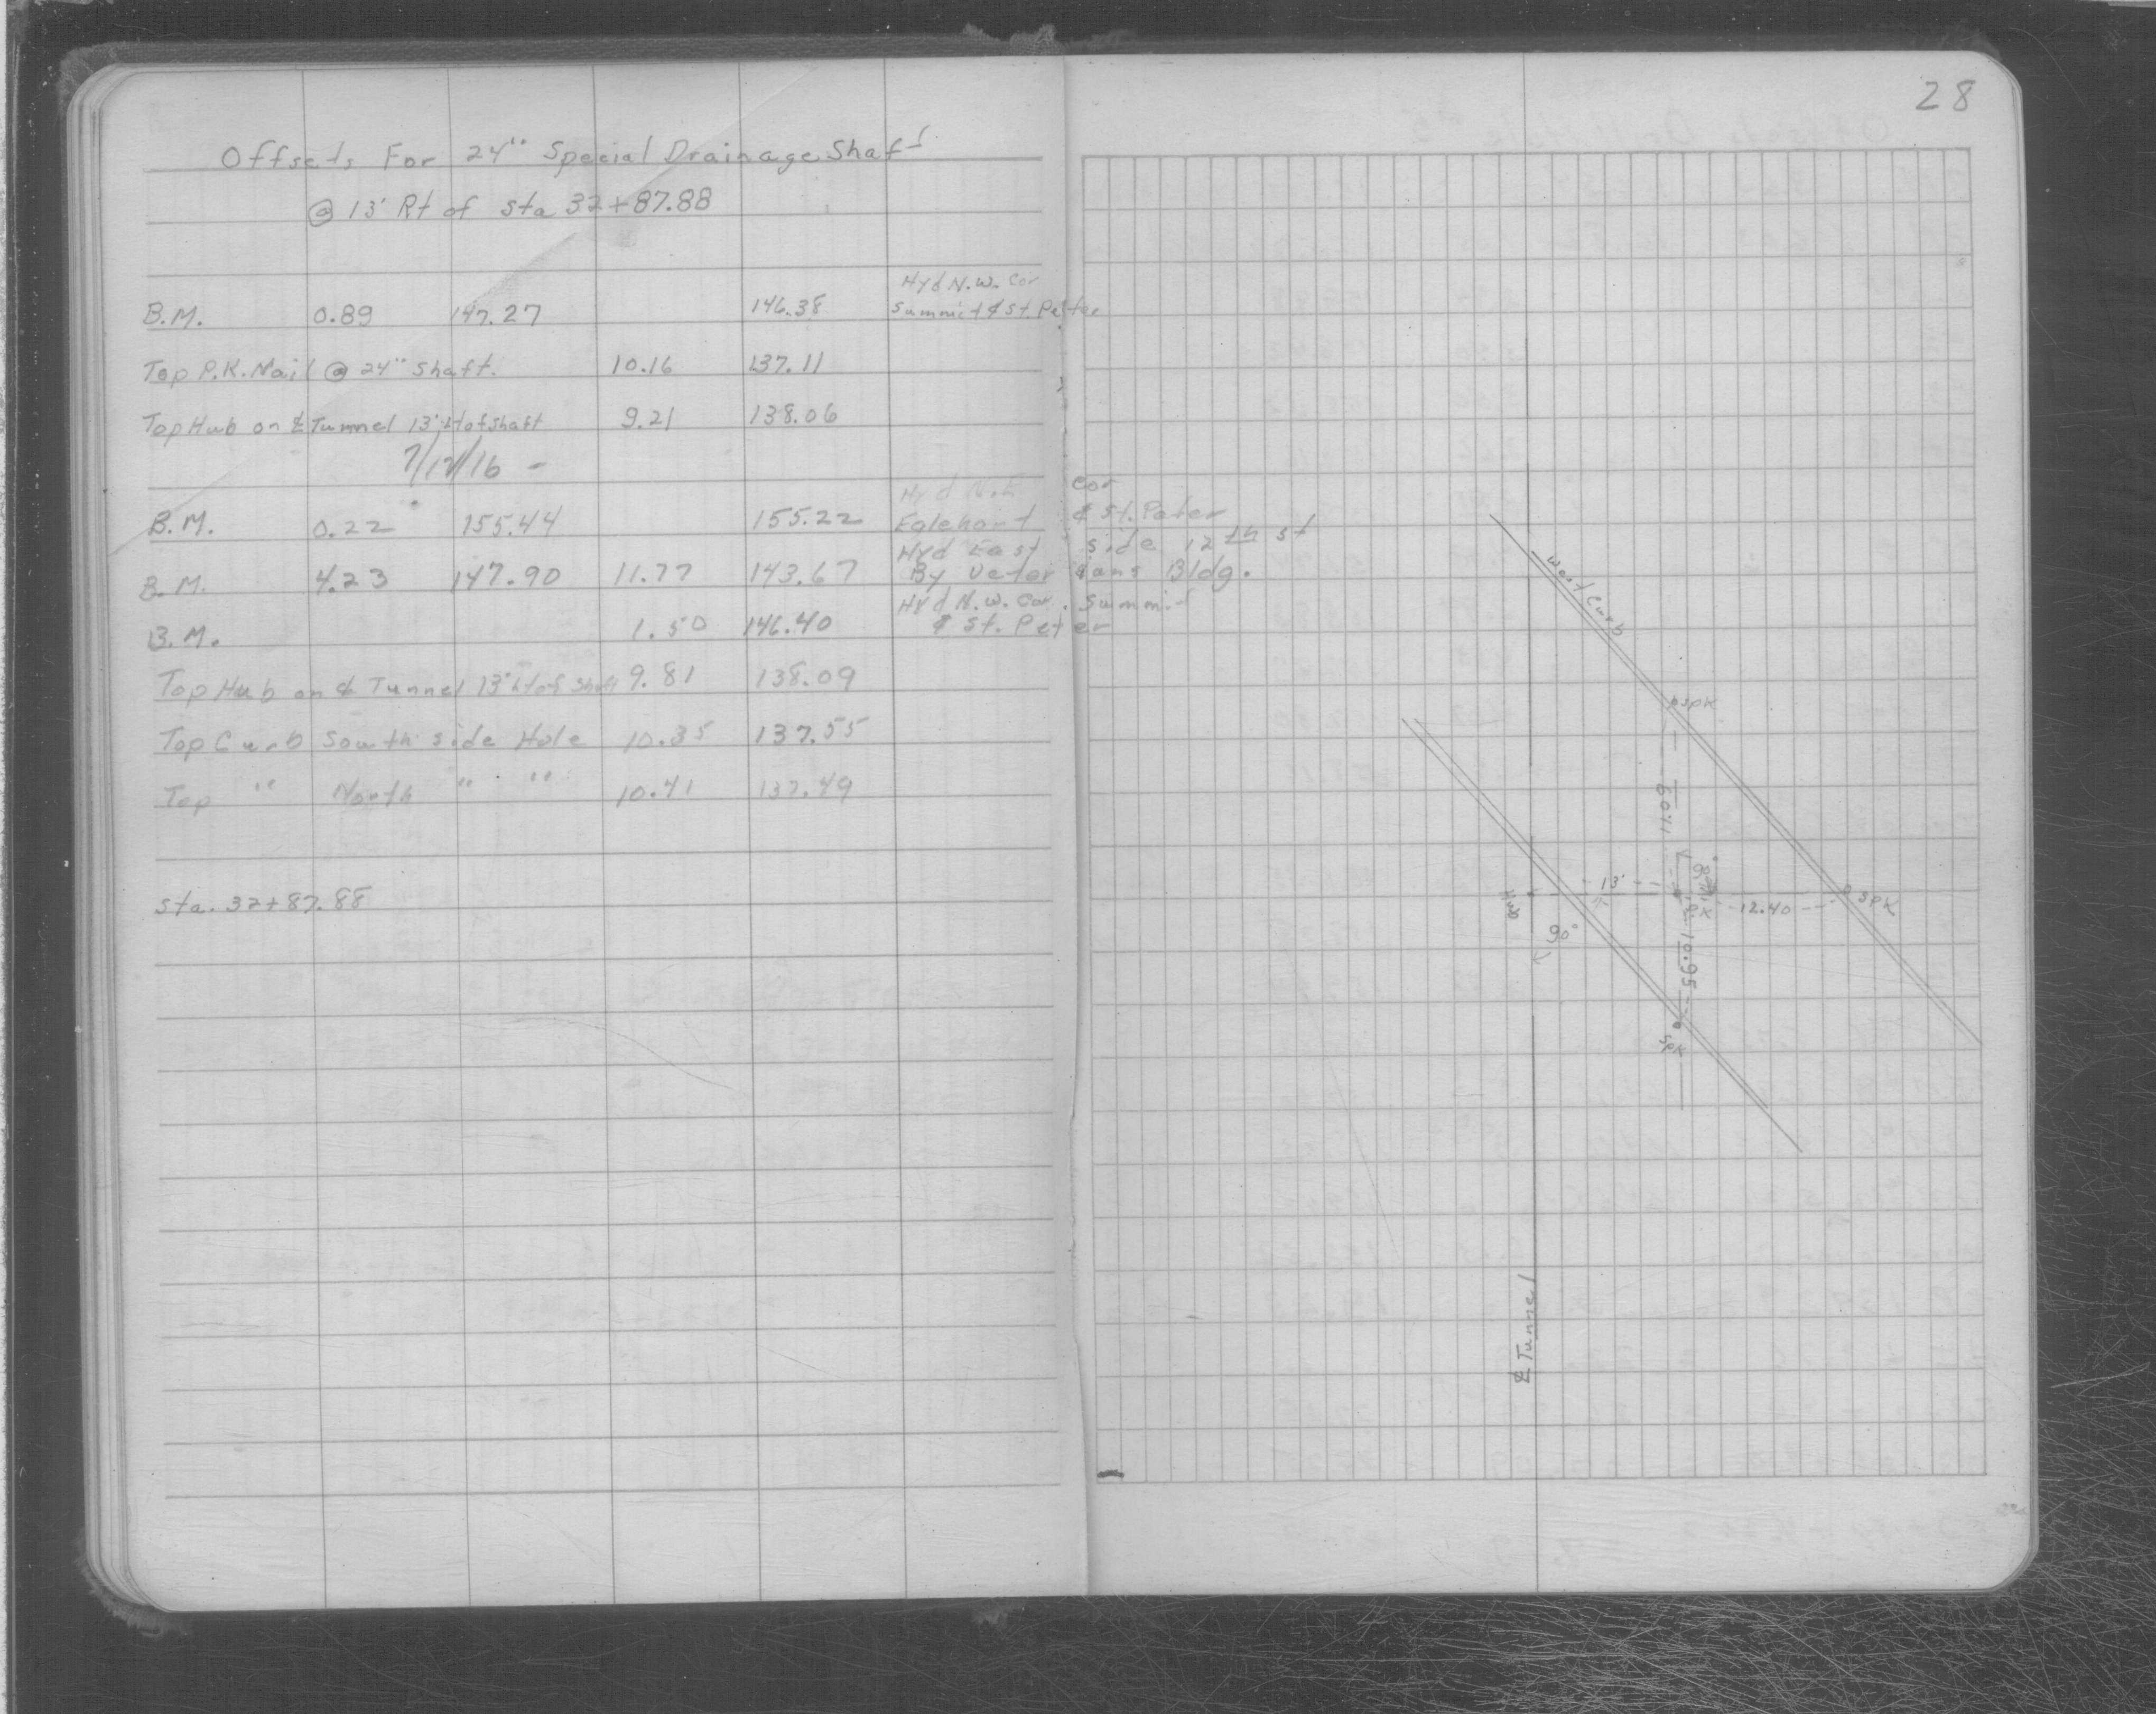 28
Offsets For 24" Special Drainage Shaft
@ 13' Rt of Sta 32+87.88
Hyd N.W. Cor
B.M. 0.89 147.27 146.38 Summit & St. Peter
Top P.K. Nail @ 24" Shaft. 10.16 137.11
Top Hub on ℄ Tunnel 13' Lt of Shaft 9.21 138.06
Hyd N.E. Cor
B.M. 0.22 155.44 155.22 & St. Peter
Hyd East side 12th st
B.M. 4.23 147.90 11.77 143.67 By Veterans Bldg.
Hyd N.W. Cor. Summit
B.M. 1.50 146.40 & St. Peter
Top Hub on ℄ Tunnel 13' Lt of Shaft 9.81 138.09
Top Curb South side Hole 10.35 137.55
Top " North " " 10.41 137.49
Sta. 32+87.88
West Curb
SPK
11.09
13'
Hub
90°
12.40
SPK
10.95
SPK
℄ Tunnel